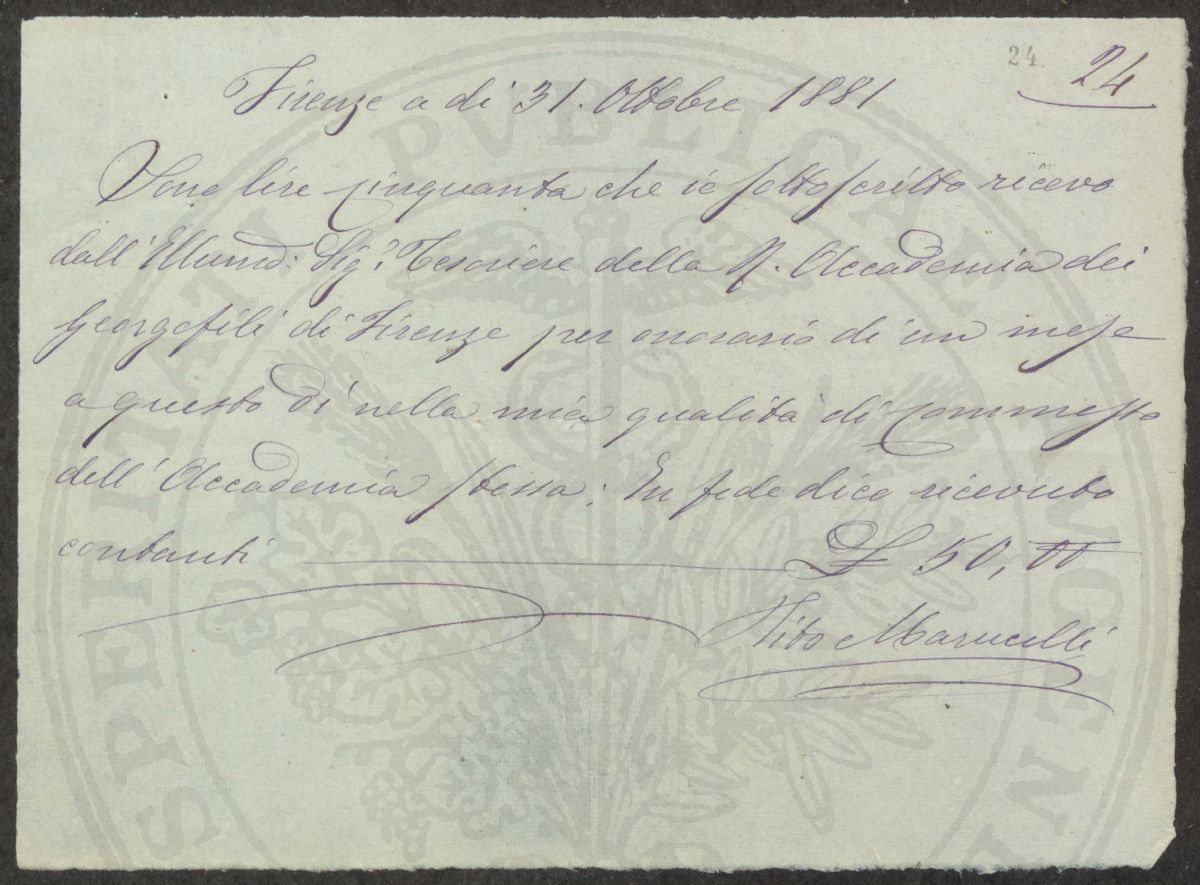 24.
24
Firenze a di 31. Ottobre 1881
Sono lire cinquanta che io sottoscritto ricevo
dall' Illumo: Sigr: Tesoriere della R. Accademia dei
Georgofili di Firenze per onorario di un mese
a questo dì nella mia qualità di Commesso
dell' Accademia stessa: In fede dico ricevuto
contanti £ 50, 00
Vito Marucelli
PROSPERITATI PVBLICAE AVGENDAE